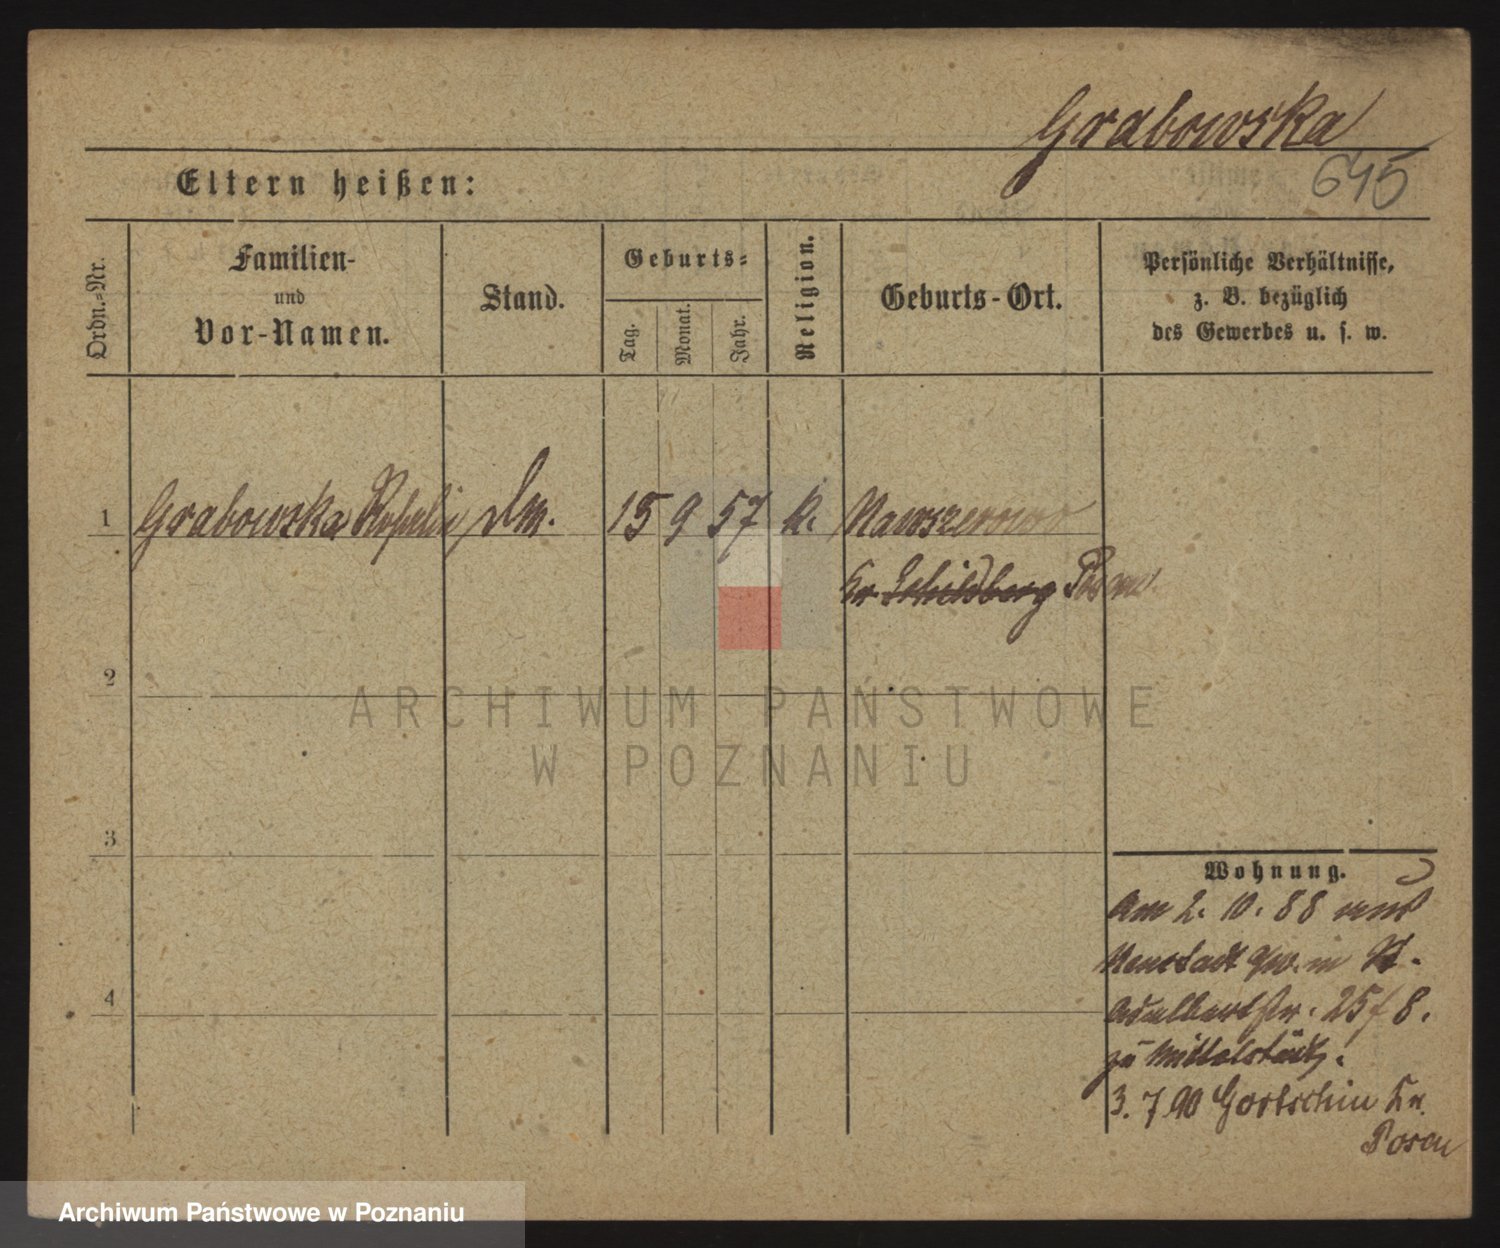 Grabowska
645
Eltern heißen:
Ordn.-Nr.
Familien-
und
Vor-Namen.
Stand.
Geburts-
Tag.
Monat.
Jahr.
Religion.
Geburts-Ort.
Persönliche Verhältnisse,
z. B. bezüglich
des Gewerbes u. s. w.
1 Grabowska 15 9 57 k.
Kr Schildberg Posen
2
ARCHIWUM PAŃSTWOWE
W POZNANIU
3
4
Wohnung.
Am 2. 10. 88 aus
Neustadt in St.
Adalbertstr. 25 f 8.
zu
3. 7 90 Gortschin Kr.
Posen
Archiwum Państwowe w Poznaniu